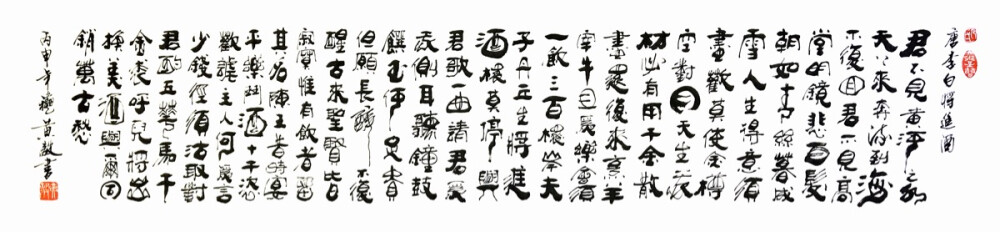 唐李白將進酒
君不見黃河之水
天上來奔流到海
不復回君不見高
堂明鏡悲白髮
朝如青絲暮成
雪人生得意須
盡歡莫使金樽
空對月天生我
材必有用千金散
盡還復來烹羊
宰牛且為樂會須
一飲三百杯岑夫
子丹丘生將進
酒杯莫停與
君歌一曲請君為
我側耳聽鐘鼓
饌玉何足貴
但願長醉不復
醒古來聖賢皆
寂寞惟有飲者留
其名陳王昔時宴
平樂斗酒十千恣
歡謔主人何為言
少錢徑須沽取對
君酌五花馬千
金裘呼兒將出
換美酒與爾同
銷萬古愁
丙申年穐黃毅書